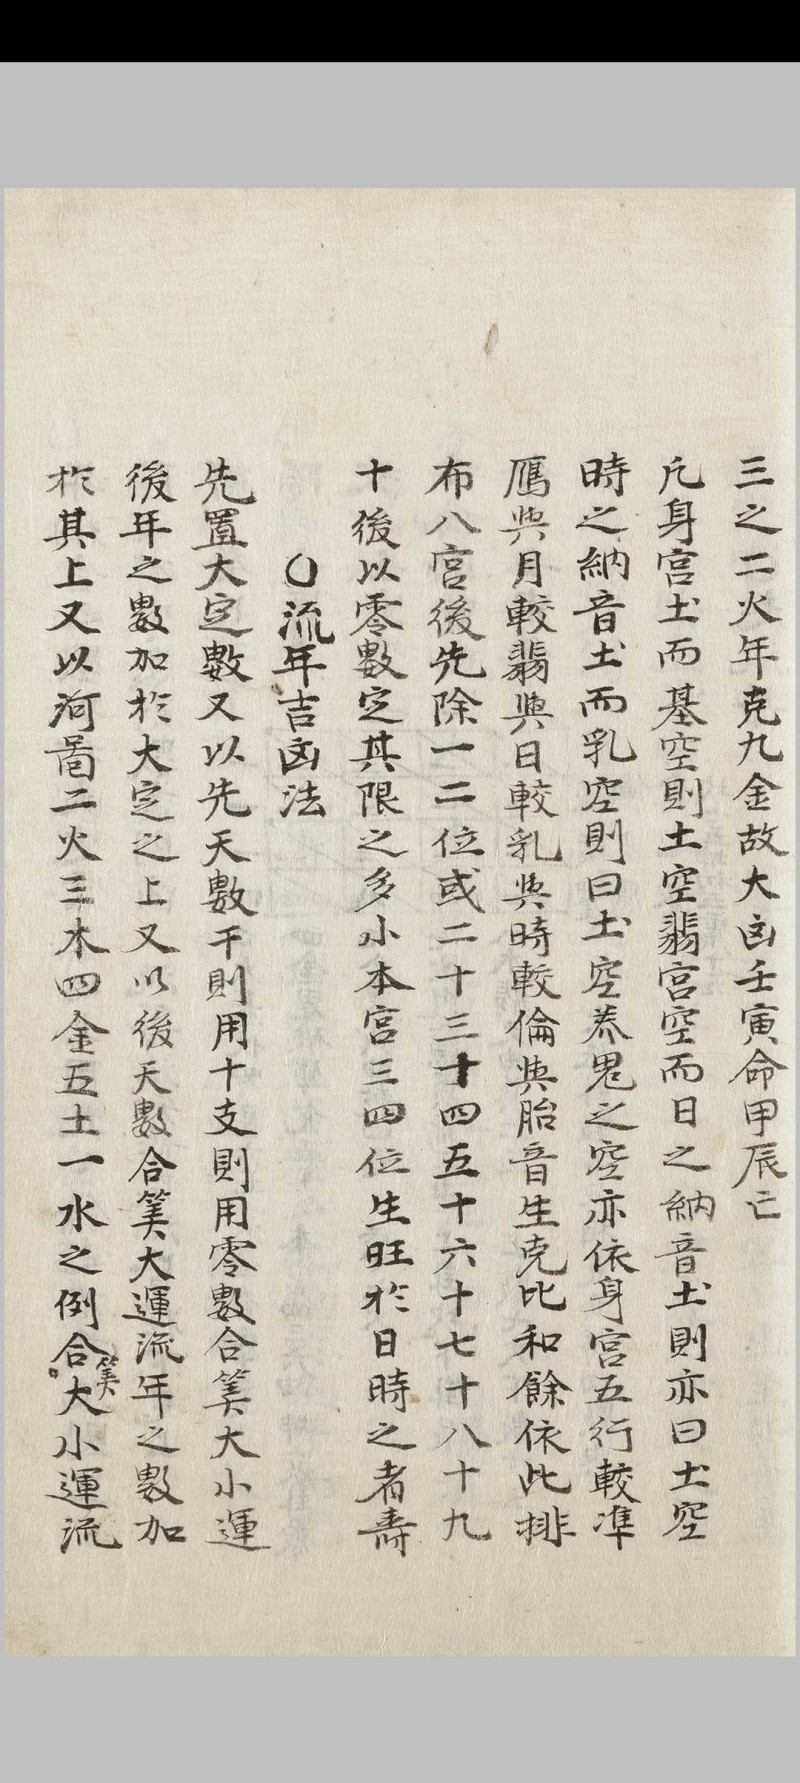 三之二火年克九金故大凶壬寅命甲辰亡
凡身宮土而基空則土空翡宮空而日之納音土則亦曰土空
時之納音土而乳空則曰土空養鬼之空亦依身宮五行較準
鴈與月較翡與日較乳與時較倫與胎音生克比和餘依此排
布八宮後先除一二位或二十三十四五十六十七十八十九
十後以零數定其限之多小本宮三四位生旺於日時之者壽
〇流年吉凶法
先置大定數又以先天數干則用十支則用零數合筭大小運
後年之數加於大定之上又以後天數合筭大運流年之數加
於其上又以河圖二火三木四金五土一水之例合筭大小運流